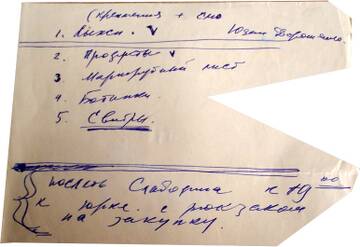 (крепления + сто
1. Лыжи. v Юдин Дорошенко.
2. Продукты v
3 Маршрутный лист
4. Ботинки
5. Свитры.
послать Слободина к 19 00
к Юрке с рюкзаком
на закупку.